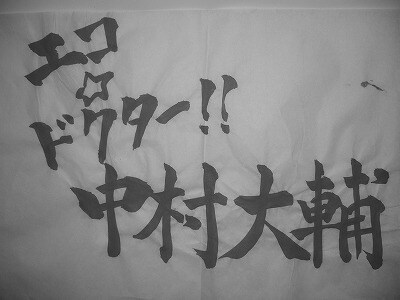 エコ
☆
ドクター!!
中村大輔